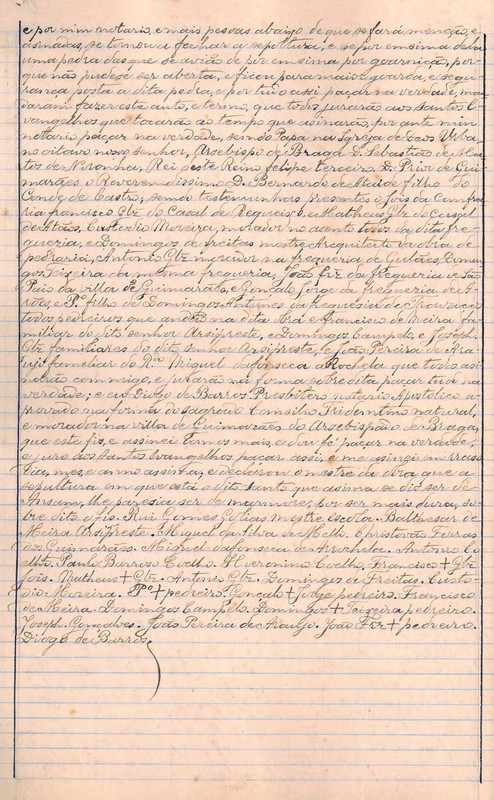 e por mim notario, e mais pessoas abaixo de que se fará menção, e
asinadas, se tornou a fechar a sepultura, e se por em sima dela
uma pedra das que se avião de por em sima por goarnição, por
que não pudese ser aberta, e ficou para mais goarda, e segu
rança posta a dita pedra, e por tudo assi paçar na verdade, man
daram fazer este auto, e termo, que todos jurarão aos Santos E
vangelhos que tocarão ao tempo que asinarão, por ante mim
notario paçar na verdade, sendo Papa na Igreja de Deos Urba
no oitavo noso senhor, Arsebispo de Braga D. Sebastião de Ma
tos de Noronha, Rei deste Reino felipe terceiro D. Prior de Gui
marães o Reverendissimo D. Bernardo de Ataide filho do
Conde de Castro, sendo testemunhas presentes o Juis da Comfra
ria francisco Glz do Casal de Requeixo, e Matheus Glz do Casal
de Atães, Custodio Moreira, morador no asento todos da dita fre
gueria, e Domingos de freitas mestre Arequiteto da obra de
pedraria, Antonio Glz morador na fregueria de Gulães, Domin
gos Teixeira da mesma fregueria, João Frz da fregueria de São
Paio da villa de Guimarães, e Gonçalo Jorge da fregueria de
e P.º filho de Domingos Antunes da freguesia de
todos pedreiros que andão na dita obra e Francisco de Meira fa-
miliar do dito senhor Arsipreste, e Domingos Campelo, e Joseph
Glz familiares do dito senhor Arsipreste, e João Pereira de Ara
ujo familiar do R.do Miguel da fonseca Arochela que todos asi
narão commigo, e jurarão na forma sobredita paçar tudo na
verdade; e eu Diogo de Barros Presbitero notario Apostolico a
provado na forma do sagrado Comsilio Tridentino natural,
e morador na villa de Guimarães do Arsebispado de Braga,
que este fis, e assinei com os mais, e dou fé paçar na verdade,
e juro aos santos evangelhos paçar assi, e me asinei em
dia, mes, e anno assima, e declarou o mestre da obra que a
sepultura em que está o dito santo que asima se diz ser de
Ansam, lhe parecia ser de marmore, por ser mais dura, so
bre dito o fis. Rui Gomes Golias mestre escola. Balthesar de
Meira Arsipreste. Miguel da Silva de Mello. Cpristovão Ferras
dos Guimarães. Miguel dafonseca de Arochela. Antonio Co
elho. Paulo Barroso Coelho. Hieronimo Coelho, Francisco + Glz
Jois. Matheus + Glz. Antonio Glz. Domingos de Freitas. Custo
dio Moreira. P.º + pedreiro. Gonçalo + Jorge pedreiro. Francisco
de Meira. Domingos Campelo. Domingos + Teixeira pedreiro.
Joseph Gonçalves. João Pereira de Araujo. João Frz + pedreiro.
Diogo de Barros.